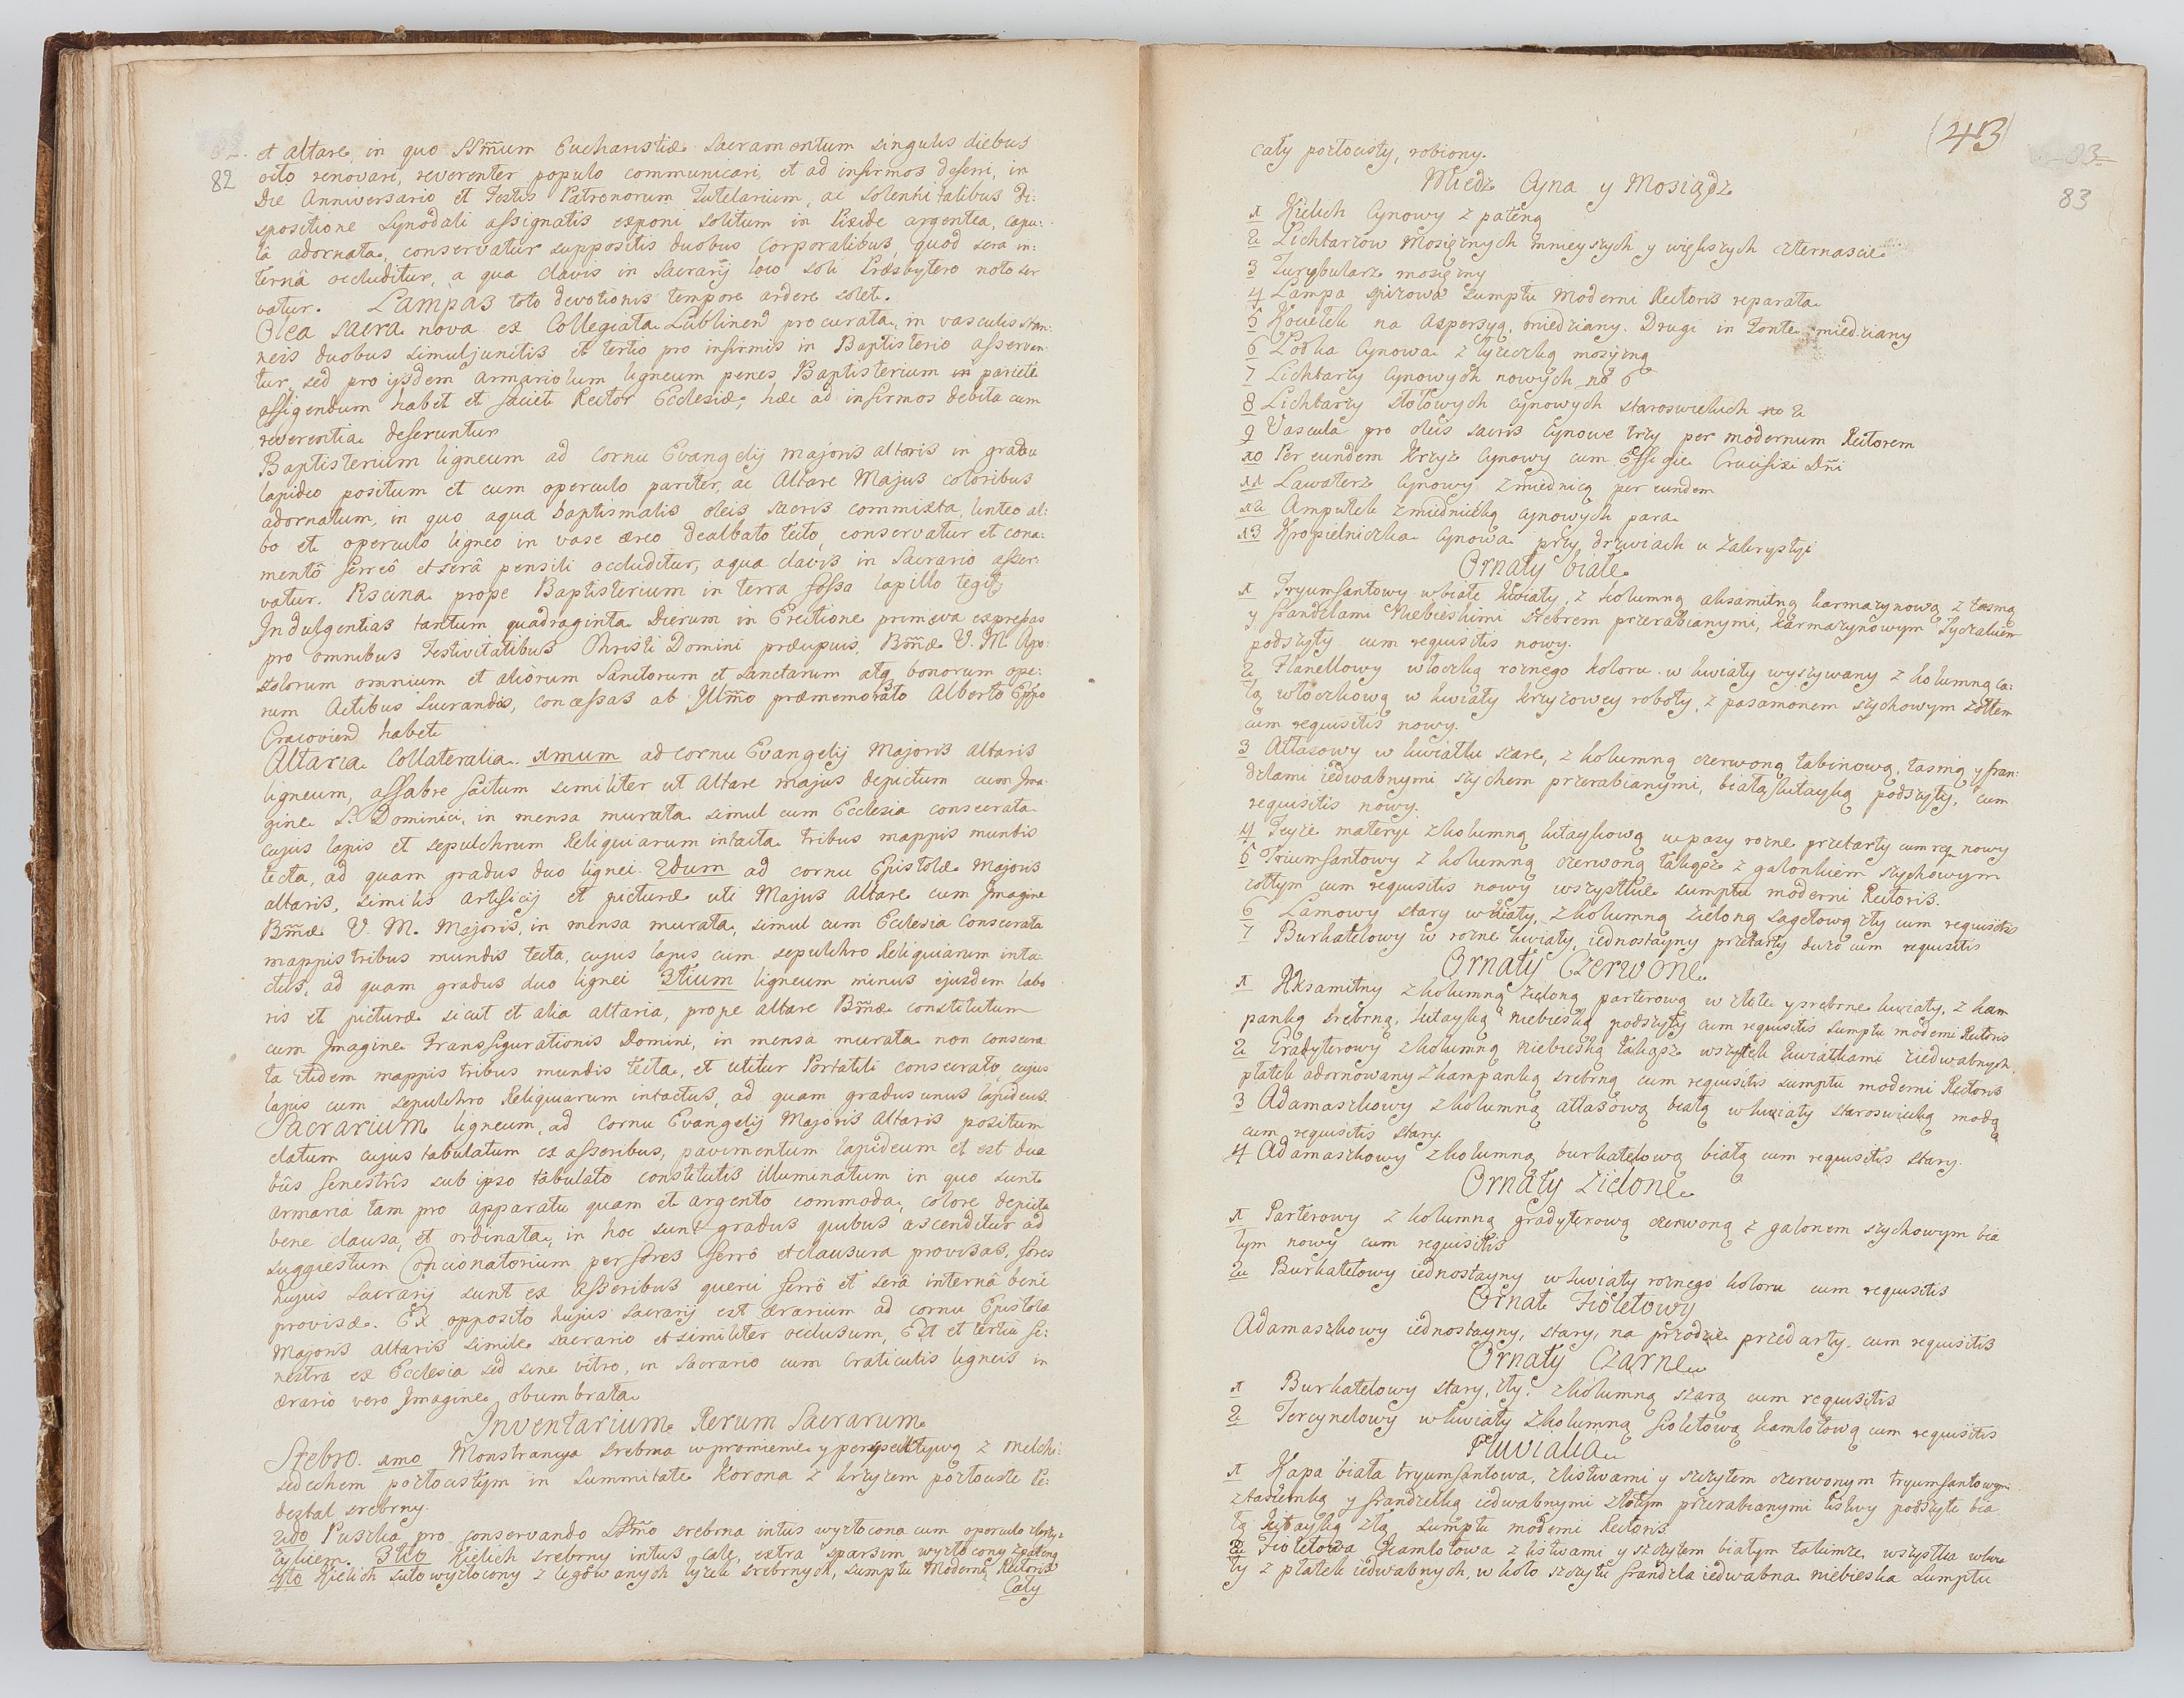 82
et altare, in quo SSm̃um Eucharistiæ Sacramentum singulis diebus
octo renovari, reverenter populo communicari, et ad infirmos deferri, in
Die Anniversario et Festis Patronorum Tutelarium, ac Solennitatibus Di:
spositione Synodali assignatis exponi solitum in Pixide argentea, capu:
lâ adornata, conservatur suppositis duobus Corporalibus, quod sera in:
ternâ occluditur, a qua clavis in Sacrarij loco soli Præsbytero noto ser
vatur. Lampas toto devotionis tempore ardere solet.
Olea sacra nova ex Collegiata Lublinen̄ procurata, in vasculis stan:
neis duobus simul junctis et tertio pro infirmis in Baptisterio asservan
tur, sed pro ijsdem armariolum ligneum penes Baptisterium in pariete
affigendum habet et faciet Rector Ecclesiæ, hæc ad infirmos debita cum
reverentia deferuntur
Baptisterium ligneum ad Cornu Evangelij majoris altaris in gradu
lapideo positum et cum operculo pariter, ac Altare Majus coloribus
adornatum, in quo aqua baptismalis oleis sacris commixta, linteo al:
bo et operculo ligneo in vase æreo dealbato tecto, conservatur et cona:
mentô ferreô et serâ pensili occluditur, a qua clavis in Sacrario asser:
vatur. Piscina prope Baptisterium in terra fossa lapillo tegit̃
Indulgentias tantum quadraginta Dierum in Erectione primæva expressas
pro omnibus Festivitatibus Christi Domini præcipuis, Bm̃æ V. M. Apo:
stolorum omnium et aliorum Sanctorum et Sanctarum atq̃ bonorum ope:
rum Actibus lucrandas, concessas ab Jllm̃o præmemorato Alberto Eppo
Cracovien̄ habet
Altaria Collateralia. 1mum ad Cornu Evangelij Majoris altaris
ligneum, affabre factum similiter ut Altare majus depictum cum Jma
gine S. Dominici, in mensa murata simul cum Ecclesia consecrata
cujus lapis et sepulchrum Reliquiarum intacta tribus mappis mundis
tecta, ad quam gradus duo lignei. 2dum ad cornu Epistolæ Majoris
altaris, similis artificij et picturæ uti Majus Altare cum Jmagine
Bm̃æ V. M. Majoris, in mensa murata, simul cum Ecclesia Consecrata
mappis tribus mundis tecta, cujus lapis cum sepulchro Reliquiarum inta
ctus, ad quam gradus duo lignei 3tium ligneum minus ejusdem labo
ris et picturæ sicut et alia altaria, prope altare Bm̃æ constitutum
cum Jmagine Transfigurationis Domini, in mensa murata non consecra
ta itidem mappis tribus mundis tecta, et utitur Portatili consecrato, cujus
lapis cum sepulchro Reliquiarum intactus, ad quam gradus unus lapideus.
Sacrarium ligneum, ad Cornu Evangelij Majoris Altaris positum
datum cujus tabulatum ex asseribus, pavimentum lapideum et est dua
bus fenestris sub ipso tabulato constitutis illuminatum in quo sunt
armaria tam pro apparatu quam et argento commoda, colore depicta
bene clausa, et ordinata, in hoc sunt gradus quibus ascenditur ad
suggestum Concionatorium per fores ferrô et clausura provisas, fores
hujus Sacrarij sunt ex asseribus querci ferrô et serâ internâ bene
provisæ. Ex opposito hujus Sacrarij est ærarium ad cornu Epistolæ
Majoris altaris simile sacrario et similiter occlusum, Est et tertia fe:
nestra ex Ecclesia sed sine vitro, in Sacrario cum Craticulis ligneis in
ærario vero Jmagine obumbrata
Jnventarium Rerum Sacrarum
Srebro. 1mo Monstrancya srebrna w promienie y perspektywą z Melchi:
sedechem pozłocistym in summitate Korona z krzyżem pozłociste Pi:
destał srebrny.
2do Puszka pro conservando SSm̃o srebrna intus wyzłocona cum operculo z krzy:
żykiem. 3tio Kielich srebrny intus całe, extra sparsim wyzłocony z pateną
4to Kielich suto wyzłocony z legowanych łyżek srebrnych, sumptu Moderni Rectoris
Cały
(43)
83
cały pozłocisty, robiony.
Miedz Cyna y Mosiądz
1 Kielich Cynowy z pateną
2 Lichtarzow Mosiężnych mnieyszych y większych czternascie
3 Turybularz mosiężny
4 Lampa spiżowa sumptu Moderni Rectoris reparata
5 Kociełek na Aspersyą, miedziany. Drugi in Fonte miedziany
6 Łodka Cynowa z łyżeczką mosiężną
7 Lichtarzy Cynowych nowych no 6
8 Lichtarzy stołowych cynowych staroswieckich no 2
9 Vascula pro oleis sacris Cynowe trzy per modernum Rectorem
10 Per eundem Krzyż Cynowy cum Effigie Crucifixi Dñi
11 Lawaterz Cynowy z miednicą per eundem
12 Ampułek z miedniczką cynowych para
13 Kropielniczka Cynowa przy drzwiach u Zakrystyi
Ornaty białe
1 Tryumfantowy w białe kwiaty, z kolumną aksamitną karmazynową z tasmą
y frandzlami Niebieskimi srebrem przerabianymi, karmazynowym Tyczakiem
podszyty cum requisitis nowy.
2 Flanellowy włoczką rożnego koloru w kwiaty wyszywany z kolumną ca:
łą włoczkową w kwiaty krzyżowey roboty, z pasamonem szychowym żołtem
cum requisitis nowy.
3 Atłasowy w kwiatki szare, z kolumną czerwoną tabinową, tasmą y fran:
dzlami iedwabnymi szychem przerabianymi, białą kitayką podszyty, cum
requisitis nowy.
4 Teyże materyi z kolumną kitaykową w pasy rożne przetarty cum req. nowy
5 Triumfantowy z kolumną czerwoną takąsz z galonkiem szychowym
żołtym cum requisitis nowy wszystkie sumptu moderni Rectoris.
6 Lamowy stary w kwiaty, z kolumną zieloną sagetową zły cum requisitis
7 Burkatelowy w rożne kwiaty, iednostayny przetarty dużo cum requisitis
Ornaty Czerwone
1 Aksamitny z kolumną zieloną parterową w złote y srebrne kwiaty, z kam
panką srebrną, kitayką niebieską podszyty cum requisitis sumptu moderni Rectoris
2 Gradyterowy z kolumną niebieską takąsz wszytek kwiatkami z iedwabnych
płatek adornowany z kampanką srebrną cum requisitis sumptu moderni Rectoris
3 Adamaszkowy z kolumną atłasową białą w kwiaty staroswiecką modą
cum requisitis stary.
4 Adamaszkowy z kolumną burkatelową białą cum requisitis stary.
Ornaty Zielone
1 Parterowy z kolumną gradyterową czerwoną z galonem szychowym bia
łym nowy cum requisitis
2 Burkatelowy iednostayny w kwiaty rożnego koloru cum requisitis
Ornat Fioletowy
Adamaszkowy iednostayny, stary, na przodzie przedarty, cum requisitis
Ornaty Czarne
1 Burkatelowy stary, zły. z kolumną szarą cum requisitis
2 Tercynelowy w kwiaty z kolumną fioletową kamlotową cum requisitis
Pluvialia
1 Kapa biała tryumfantowa, z listwami y szczytem czerwonym tryumfantowym
z tasiemką y frandzelką iedwabnymi złotym przerabianymi listwy podszyte bia
łą kitayką złą sumptu moderni Rectoris.
2 Fioletowa Kamlotowa z listwami y szczytem białym takimże wszystka w kwia
ty z płatek iedwabnych, w koło szczytu frandzla iedwabna niebieska sumptu